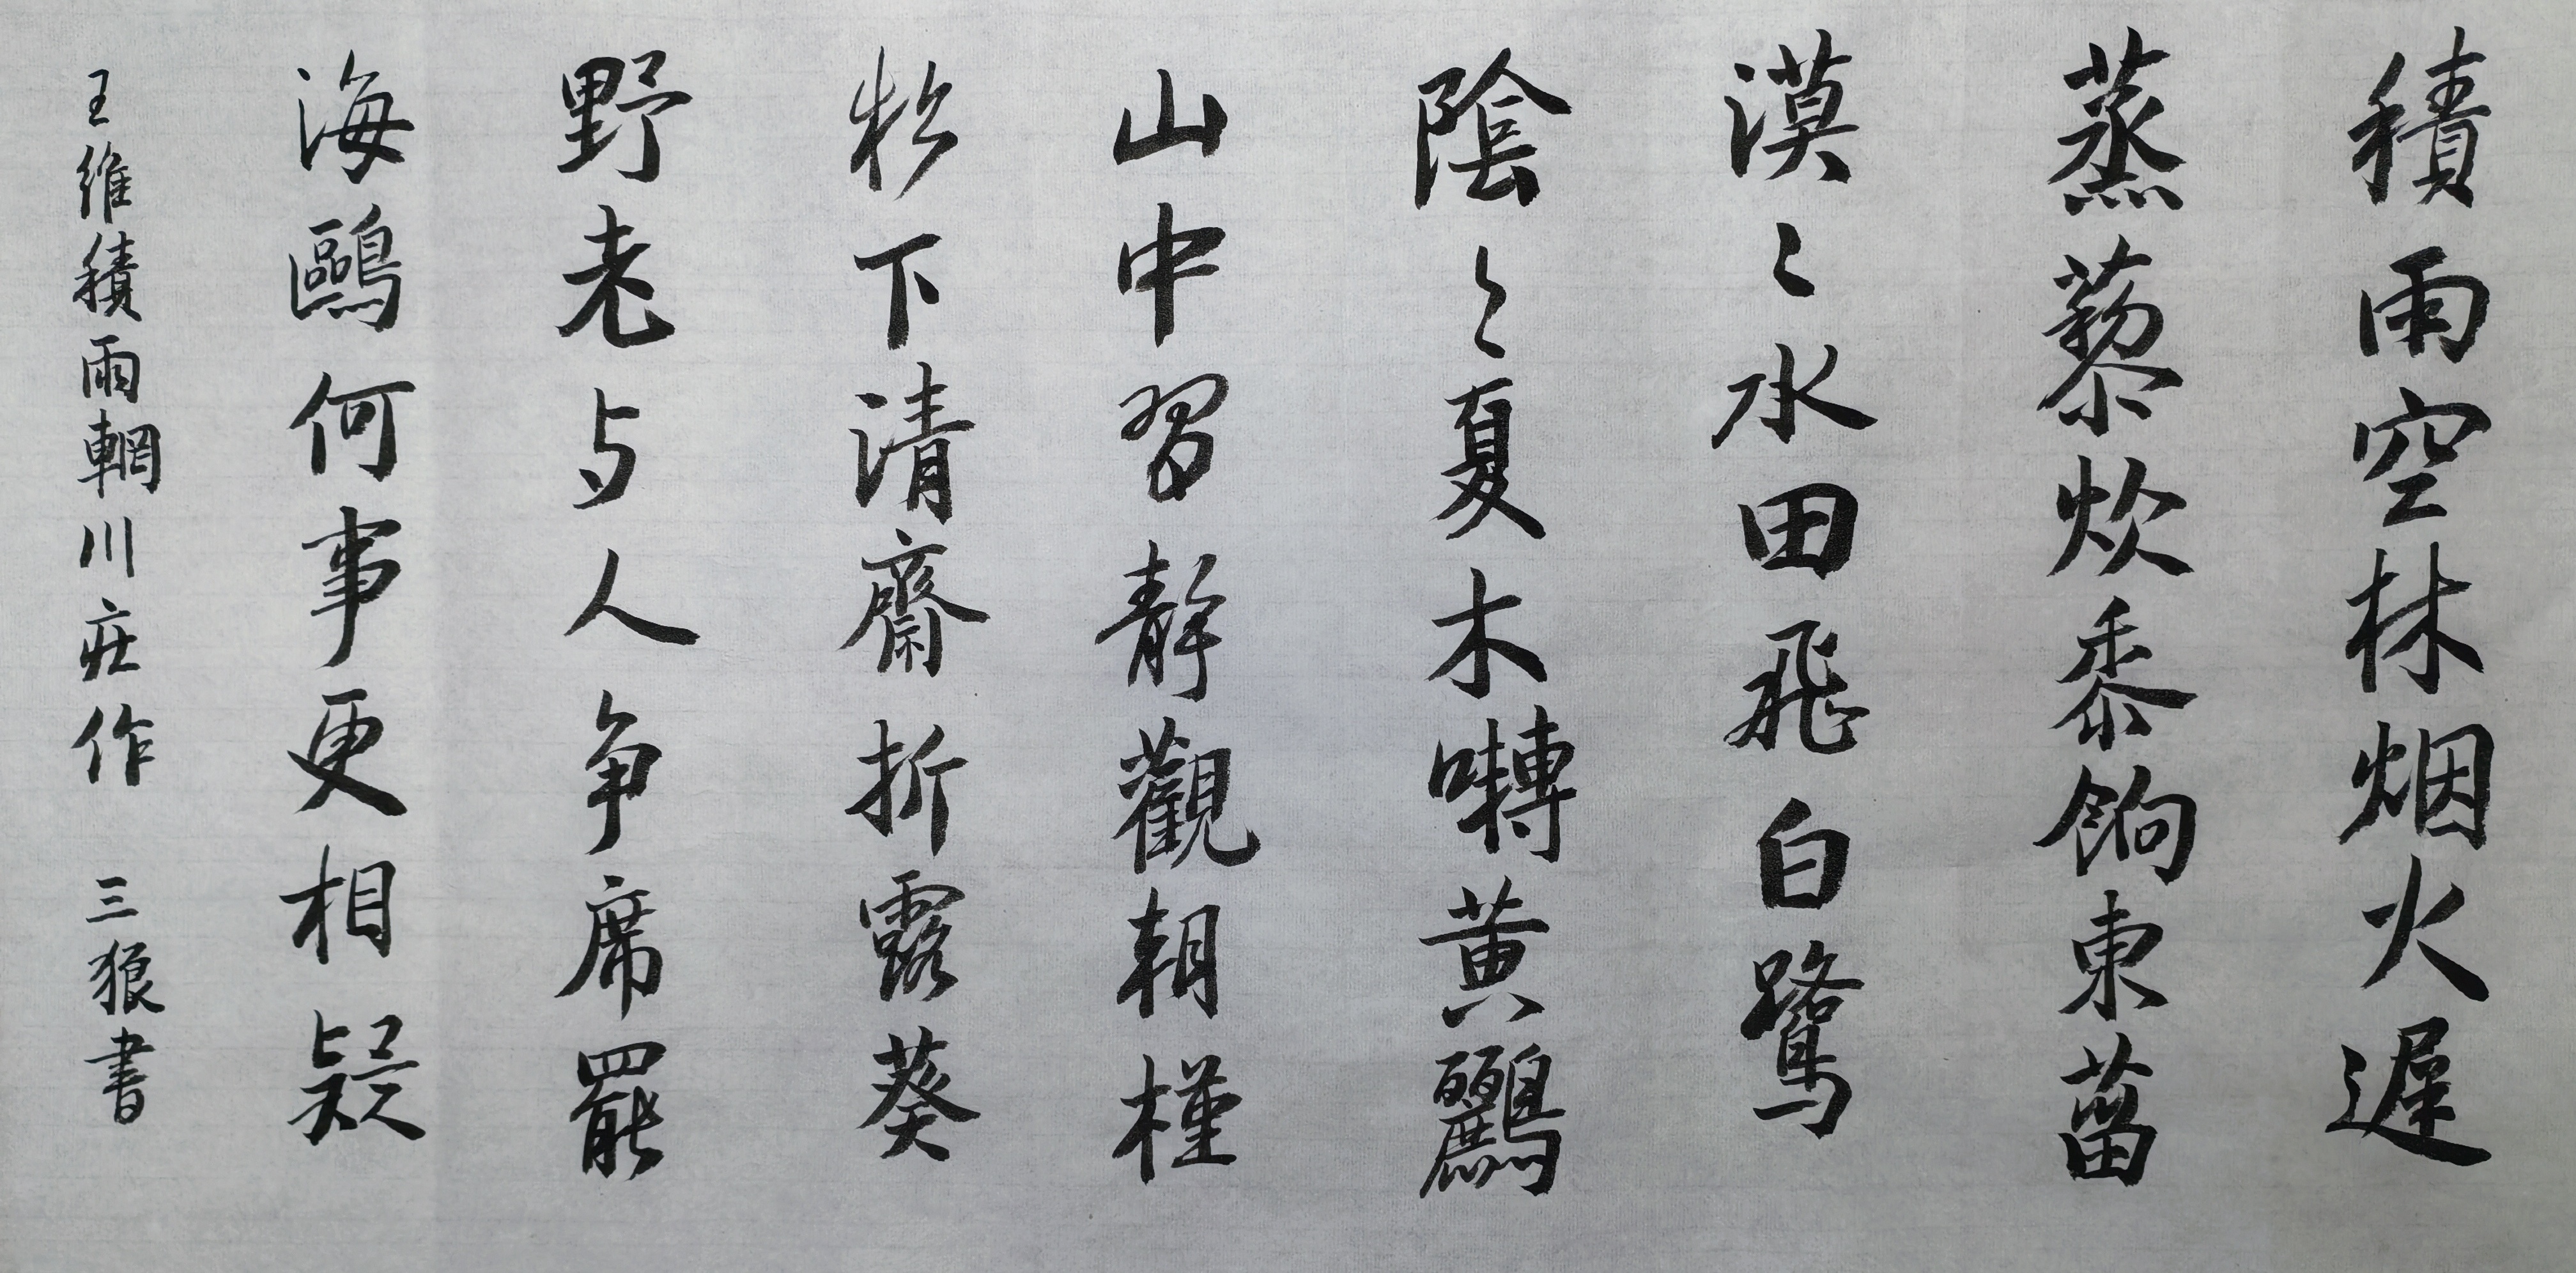 積雨空林烟火遲
蒸藜炊黍餉東菑
漠々水田飛白鷺
陰々夏木囀黄鸝
山中習静觀朝槿
松下清齋折露葵
野老与人争席罷
海鷗何事更相疑
王維積雨輞川庄作 三狼書